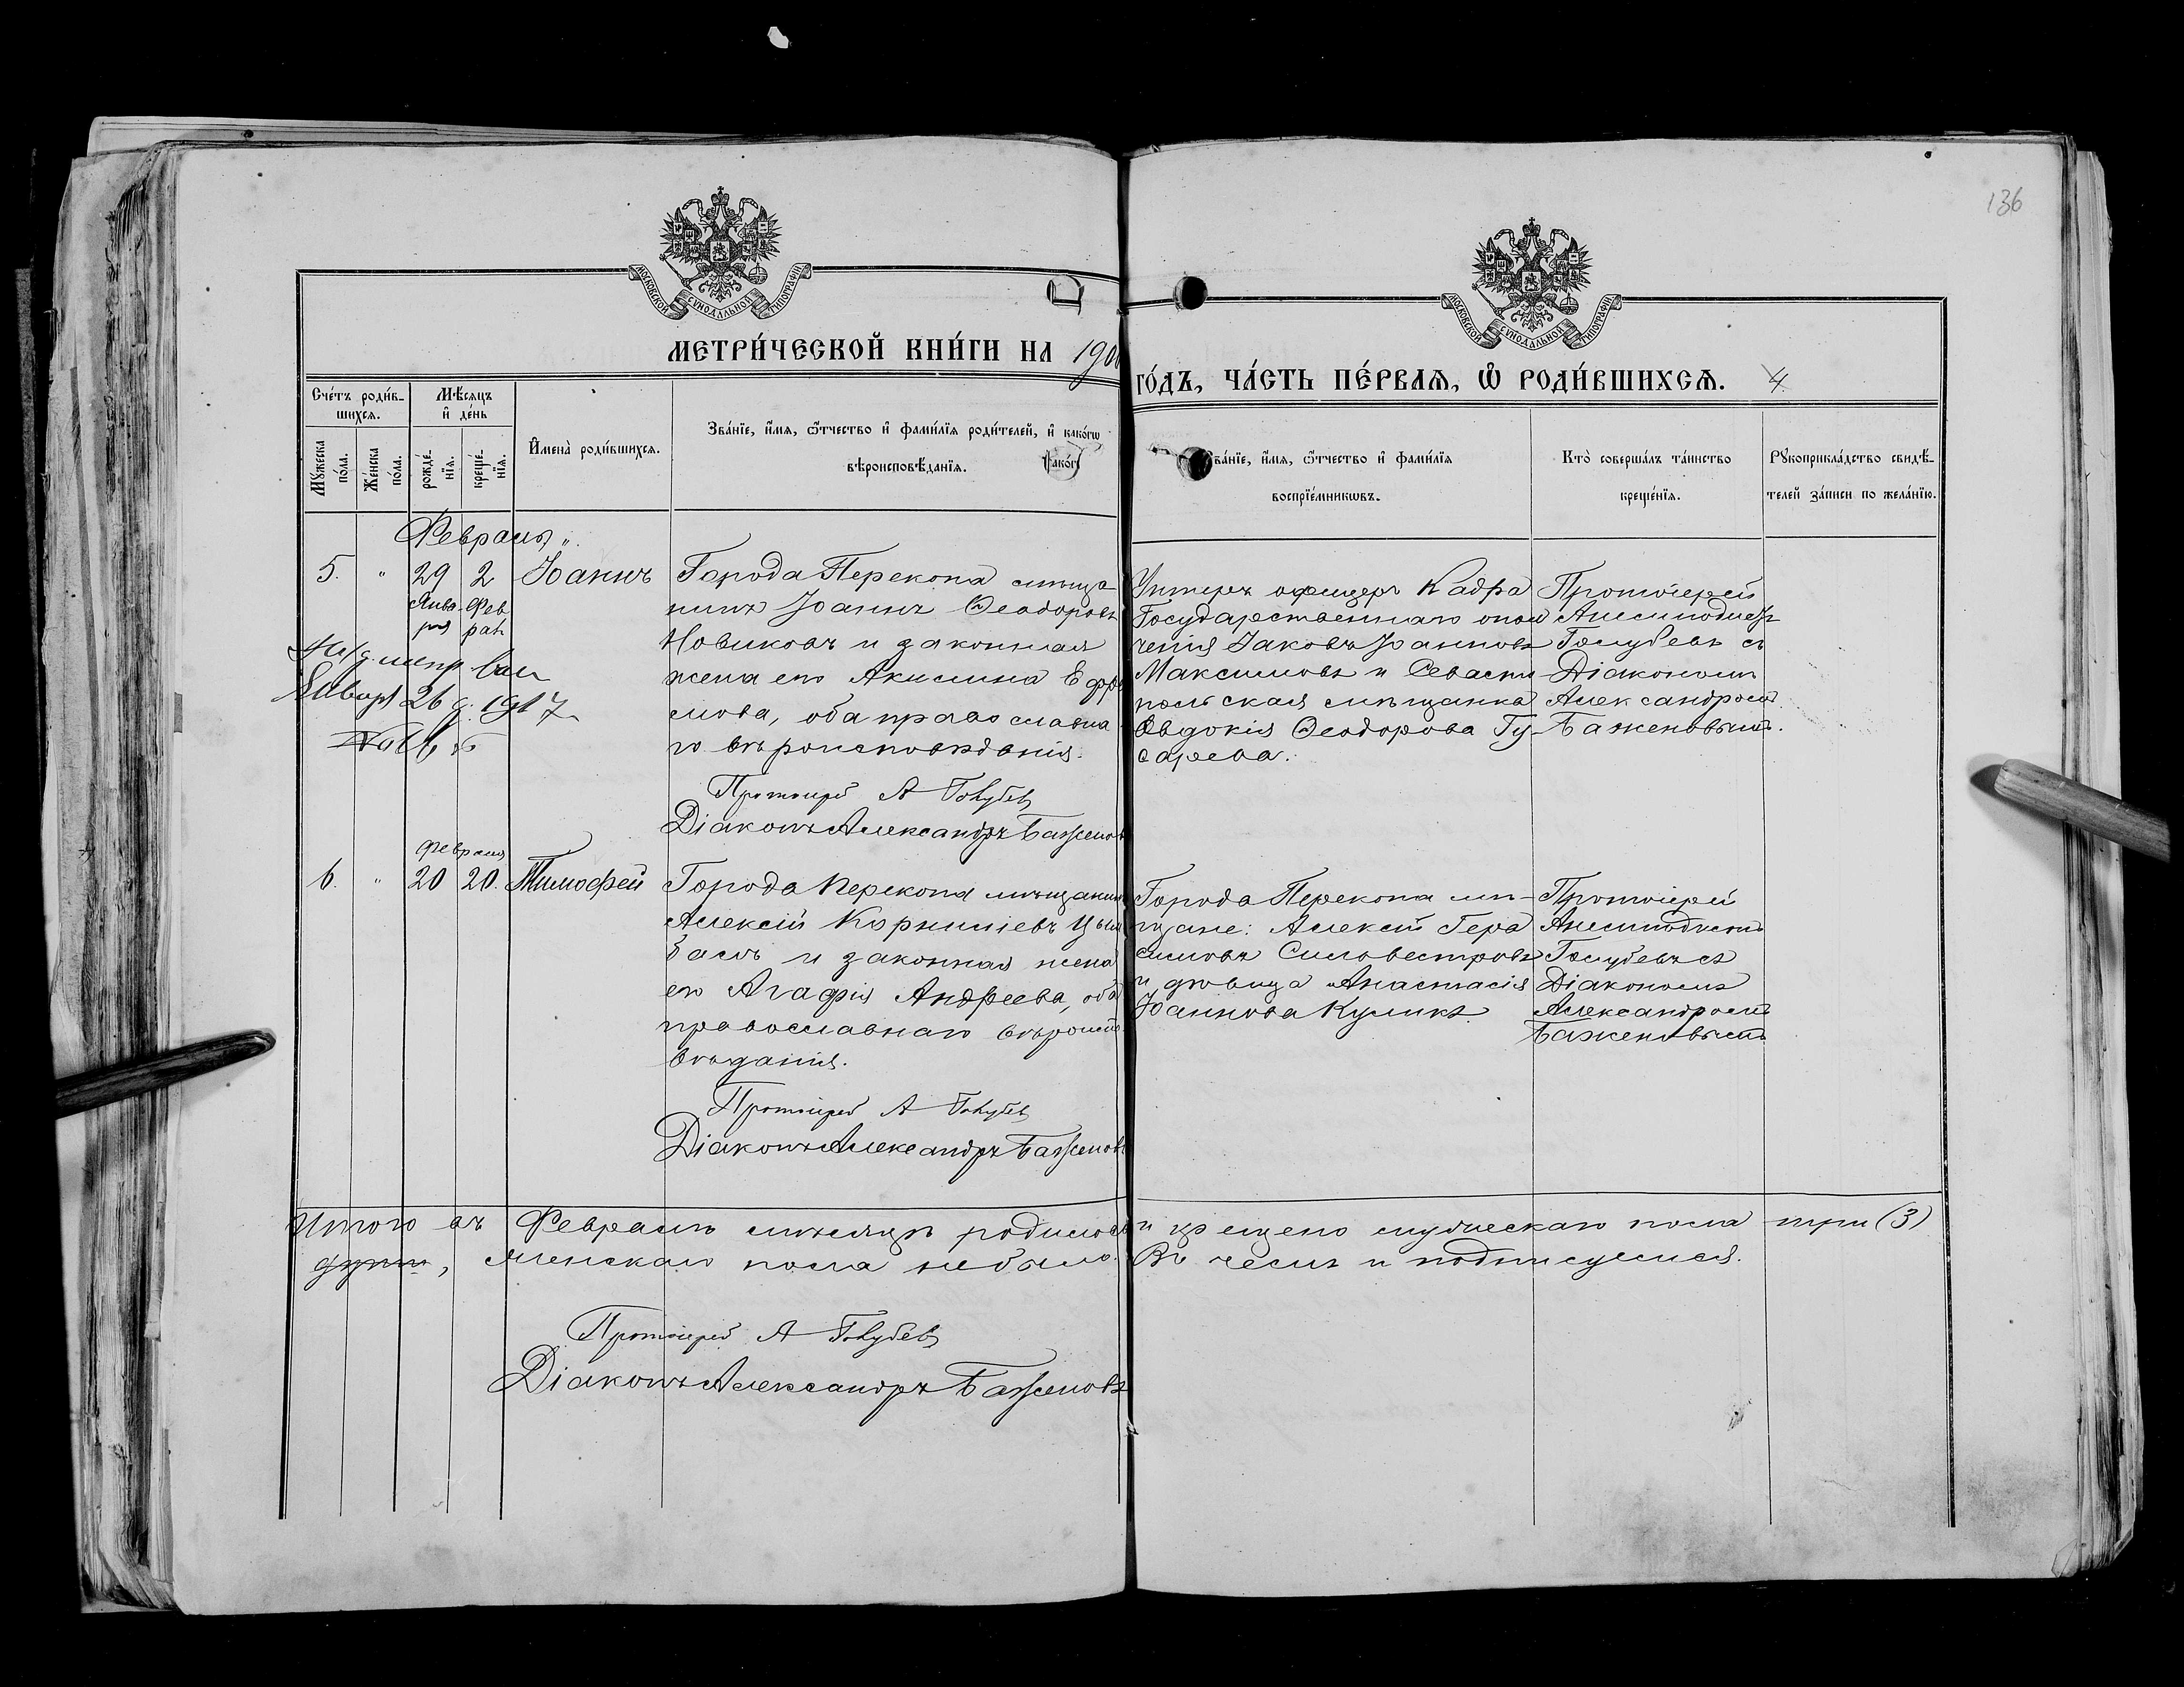 136
МОСКОВСКОЙ СѴНОДАЛЬНОЙ ТИПОГРАФІИ
МОСКОВСКОЙ СѴНОДАЛЬНОЙ ТИПОГРАФІИ
МЕТРИ́ЧЕСКОЙ КНИ́ГИ НА 190
ГО́ДЪ, ЧА́СТЬ ПЕ́РВАѦ, Ѽ РОДИ́ВШИХСѦ. 4
Сче́тъ роди́в-
шихсѧ.
Мѣ́сѧцъ
и҆ де́нь
И҆мена̀ роди́вшихсѧ.
Зва́нїе, и҆́мѧ, ѻ҆́тчество и҆ фами́лїѧ роди́телей, и҆ како́гѡ
вѣроисповѣ́данїѧ.
Мꙋ́жеска по́ла.
Же́нска по́ла.
рожде́-
нїѧ.
креще́-
нїѧ.
Зва́нїе, и҆́мѧ, ѻ҆́тчество и҆ фами́лїѧ
воспрїе́мникѡвъ.
Кто̀ соверша́лъ та́инство
креще́нїѧ.
Рꙋкоприкла́дство свидѣ́-
телей за́писи по жела́нїю.
Февраль „
5. „ 29 2 Іоаннъ
Янва-
ря
Фев
рал
Января 26 д. 1917
Города Перекопа мѣща-
нинъ Іоаннъ Ѳеодоровъ
Новиковъ и законная
жена его Акилина Ефре
мова, оба православна
го вѣроисповѣданія.
Протоіерей А Голубев
Діаконъ Александръ Баженовъ
Унтеръ офицеръ Кадра
Государственнаго опол
ченія Іаковъ Іоанновъ
Максимовъ и Севасто
польская мѣщанка
Евдокія Ѳеодорова Гу-
сарева.
Протоіерей
Анемподистъ
Голубевъ съ
Діакономъ
Александромъ
Баженовымъ.
Февраля
6. „ 20 20. Тимофей
Города Перекопа мѣщанинъ
Алексій Корниліевъ Цым
балъ и законная жена
его Агафія Андреева, оба
православнаго вѣроиспо
вѣданія.
Протоіерей А Голубев
Діаконъ Александръ Баженовъ
Города Перекопа мѣ-
щане: Алексій Гера
симовъ Силовестровъ
и дѣвица Анастасія
Іоаннова Куликъ.
Протоіерей
Анемподистъ
Голубевъ съ
Діакономъ
Александромъ
Баженовымъ
Итого въ Февралѣ мѣсяцѣ родилось и крещено мужескаго пола три (3)
души, женскаго пола небыло. Въ чемъ и подписуемся.
Протоіерей А Голубев
Діаконъ Александръ Баженовъ